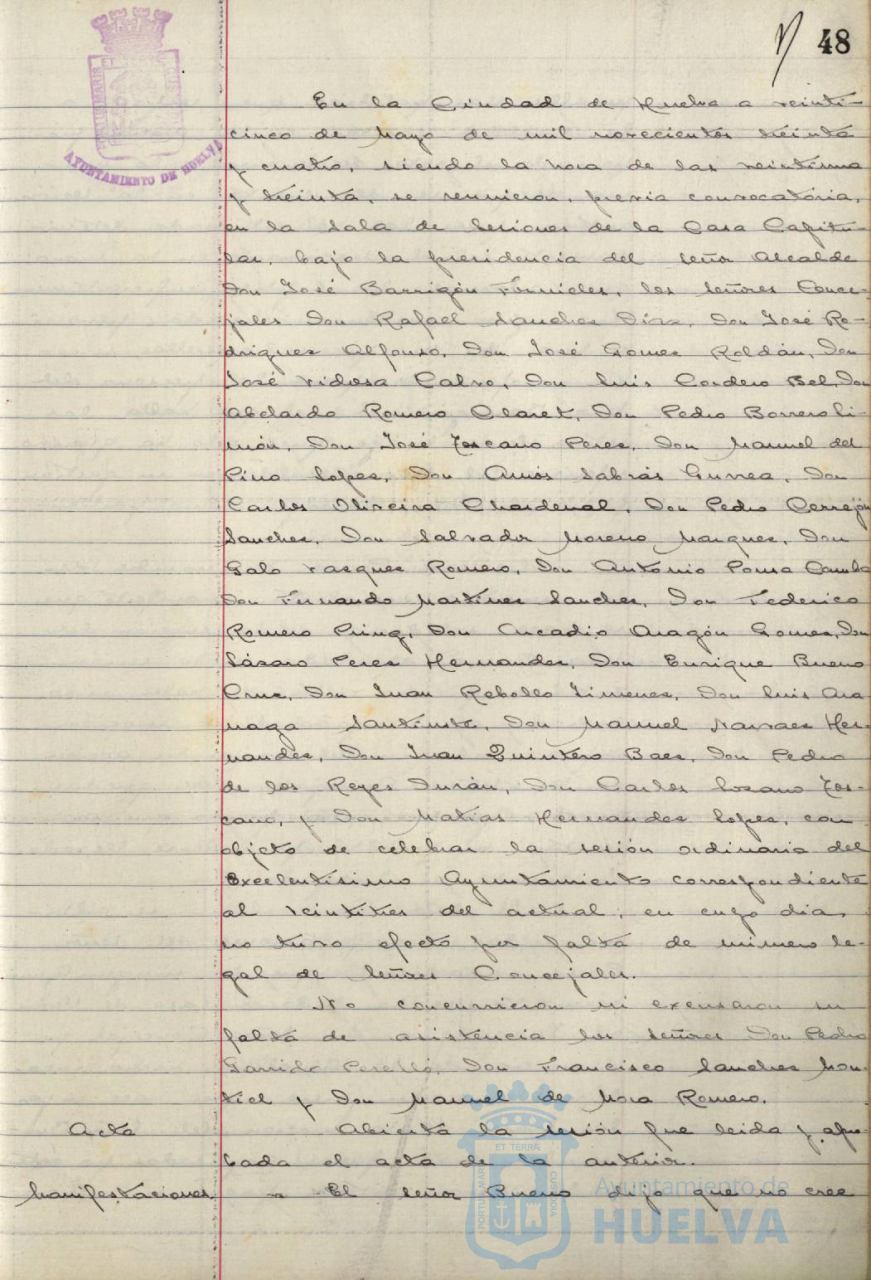 48
AYUNTAMIENTO DE HUELVA
En la Ciudad de Huelva a veinti-
cinco de Mayo de mil novecientos treinta
y cuatro, siendo la hora de las veintiuna
y treinta, se reunieron, previa convocatoria,
en la Sala de Sesiones de la Casa Capitu-
lar, bajo la presidencia del señor Alcalde
Don José Barrigón Fornieles, los señores Conce-
jales Don Rafael Sanchez Diaz, Don José Ro-
driguez Alfonso, Don José Gomez Roldán, Don
José Vidosa Calvo, Don Luis Cordero Bel, Don
Abelardo Romero Claret, Don Pedro Borrero Li-
món, Don José Toscano Perez, Don Manuel del
Pino Lopez, Don Amós Sabrás Gurrea, Don
Carlos Oliveira Chardenal, Don Pedro Cerrejón
Sanchez, Don Salvador Moreno Marquez, Don
Galo Vazquez Romero, Don Antonio Ponsa Camba
Don Fernando Martinez Sanchez, Don Federico
Romero Pring, Don Arcadio Aragón Gomez, Don
Lázaro Perez Hernandez, Don Enrique Bueno
Cruz, Don Juan Rebollo Jimenez, Don Luis Ara-
naga Don Manuel Narvaez Her-
nandez, Don Juan Quintero Baez, Don Pedro
de los Reyes Durán, Don Carlos Lozano Tos-
cano, y Don Matías Hernandez Lopez, con
objeto de celebrar la sesión ordinaria del
Excelentísimo Ayuntamiento correspondiente
al veintitres del actual, en cuyo dia,
no tuvo efecto por falta de número le-
gal de señores Concejales.
No concurrieron ni excusaron su
falta de asistencia los señores Don Pedro
Garrido Perelló, Don Francisco Sanchez Mon-
tiel y Don Manuel de Mora Romero.
Acta Abierta la sesión fue leida y apro-
bada el acta de la anterior.
Manifestaciones. El señor Bueno dijo que no cree
Ayuntamiento de
HUELVA